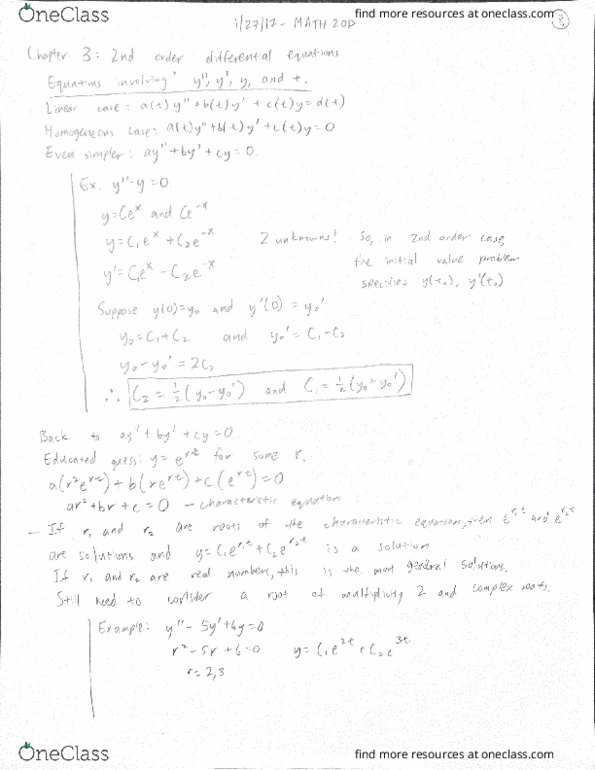 OneClass
find more resources at oneclass.com
1/27/17 - MATH 20D
Chapter 3: 2nd order differential equations
Equations involving y'', y', y, and t.
Linear case: a(t)y''+b(t)y'+c(t)y=d(t)
Homogeneous case: a(t)y''+b(t)y'+c(t)y=0
Even simpler: ay''+by'+cy=0.
Ex. y''-y=0.
y=Ce^x and Ce^-x
y=C₁e^x+C₂e^-x
2 unknowns! So, in 2nd order case,
y'=C₁e^x-C₂e^-x
the initial value problem
specifies y(t₀), y'(t₀)
Suppose y(0)=y₀ and y'(0)=y₀'
y₀=C₁+C₂ and y₀'=C₁-C₂
y₀-y₀'=2C₂
∴ C₂=½(y₀-y₀') and C₁=½(y₀+y₀')
Back to ay''+by'+cy=0.
Educated guess: y=e^rt for some r.
a(r²e^rt)+b(re^rt)+c(e^rt)=0
ar²+br+c=0 - characteristic equation
- If r₁ and r₂ are roots of the characteristic equation, then e^r₁t and e^r₂t
are solutions and y=C₁e^r₁t+C₂e^r₂t is a solution
If r₁ and r₂ are real numbers, this is the most general solution.
Still need to consider a root of multiplicity 2 and complex roots.
Example: y''-5y'+6y=0
r²-5r+6=0 y=C₁e^2t+C₂e^3t
r=2,3
OneClass
find more resources at oneclass.com